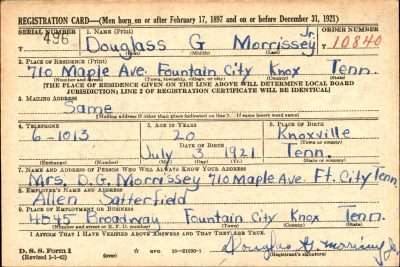 REGISTRATION CARD—(Men born on or after February 17, 1897 and on or before December 31, 1921)
SERIAL NUMBER 1. NAME (Print) ORDER NUMBER
496 Douglass G Morrissey Jr. 10840
(First) (Middle) (Last)
2. PLACE OF RESIDENCE (Print)
710 Maple Ave. Fountain City Knox Tenn.
(Number and street) (Town, township, village, or city) (County) (State)
[THE PLACE OF RESIDENCE GIVEN ON THE LINE ABOVE WILL DETERMINE LOCAL BOARD
JURISDICTION; LINE 2 OF REGISTRATION CERTIFICATE WILL BE IDENTICAL]
3. MAILING ADDRESS
Same
[Mailing address if other than place indicated on line 2. If same insert word same]
4. TELEPHONE 5. AGE IN YEARS 6. PLACE OF BIRTH
6-1013 20 Knoxville
DATE OF BIRTH (Town or county)
July 3 1921 Tenn.
(Exchange) (Number) (Mo.) (Day) (Yr.) (State or country)
7. NAME AND ADDRESS OF PERSON WHO WILL ALWAYS KNOW YOUR ADDRESS
Mrs. D. G. Morrissey 710 Maple Ave. Ft. City Tenn.
8. EMPLOYER'S NAME AND ADDRESS
Allen Satterfield
9. PLACE OF EMPLOYMENT OR BUSINESS
Broadway Fountain City Knox Tenn.
(Number and street or R. F. D. number) (Town) (County) (State)
I AFFIRM THAT I HAVE VERIFIED ABOVE ANSWERS AND THAT THEY ARE TRUE.
D. S. S. Form 1 GPO 16—21630-1 Douglas G. Morrissey Jr.
(Revised 1-1-42) (over)